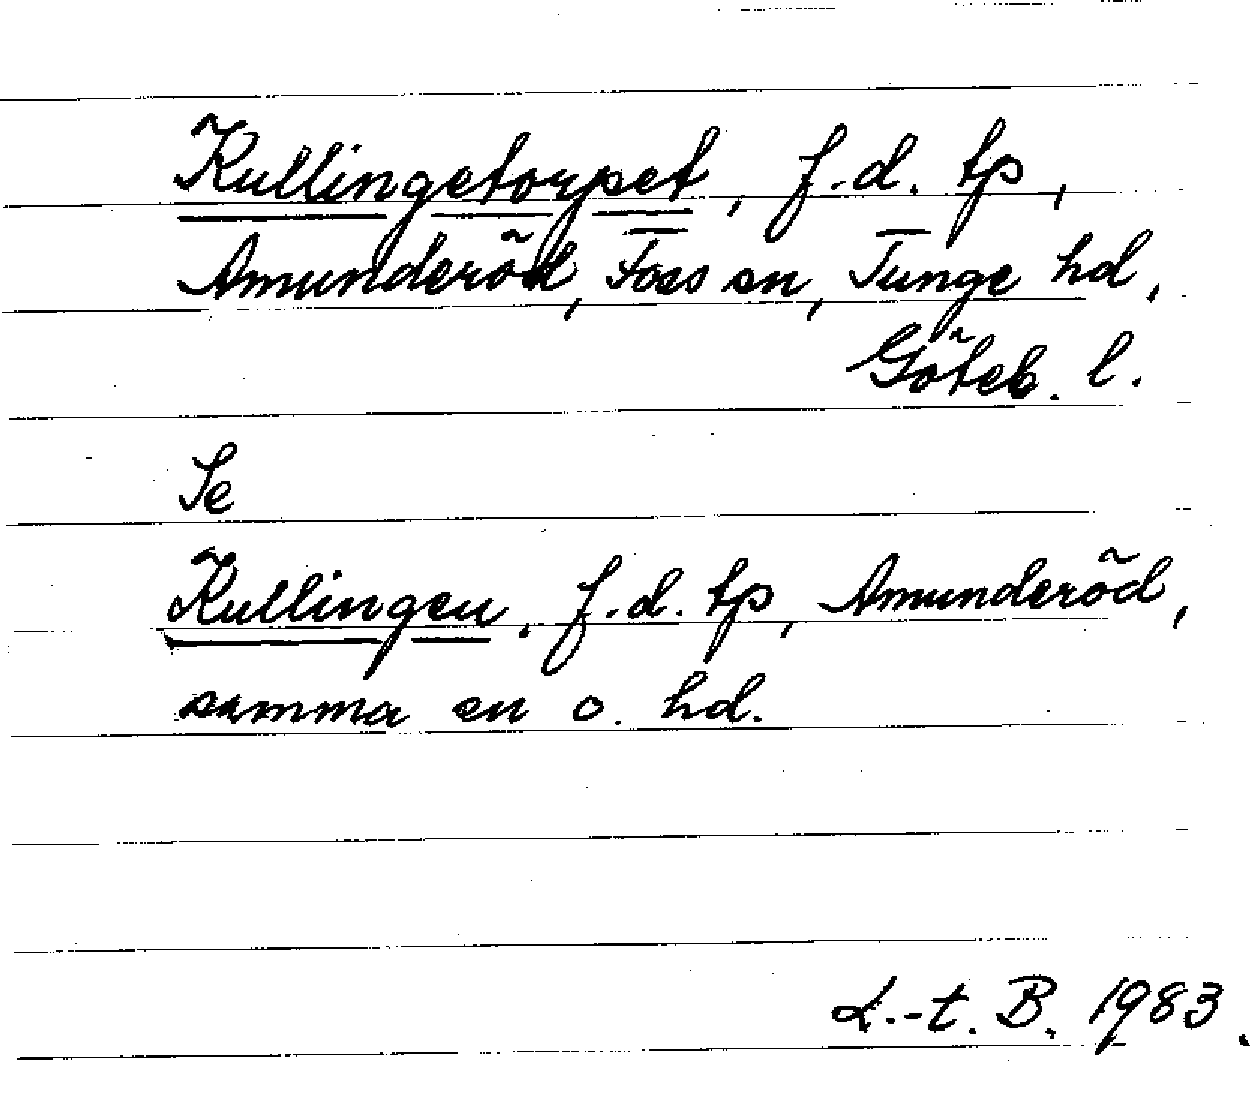 Kullingetorpet, f.d. tp,
Amunderöd, Foss sn, Tunge hd,
Göteb. l.
Se
Kullingen, f.d. tp, Amunderöd,
samma sn o. hd.
L.-t. B. 1983.